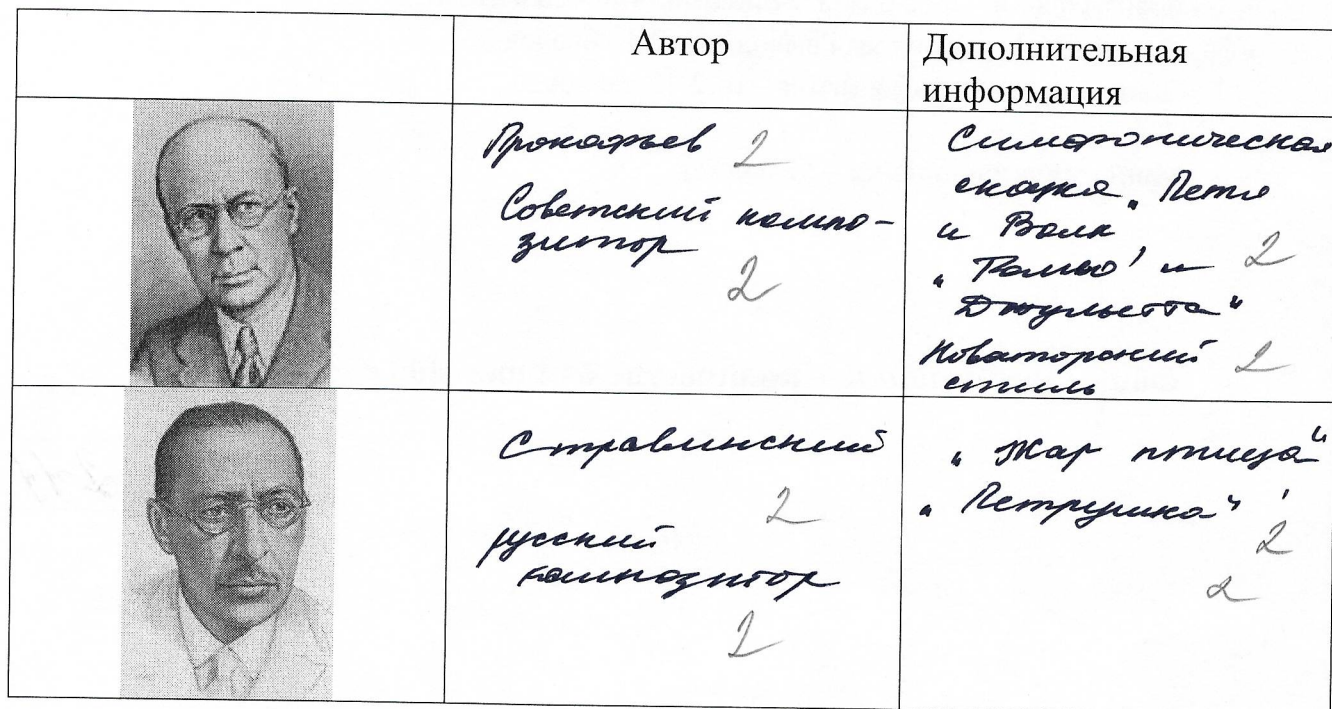 Автор
Дополнительная
информация
Прокофьев 2
Советский компо-
зитор
2
Симфоническая
сказка „Петя
и Волк
„Ромео' и 2
Джульетта"
Новаторский 2
стиль
Стравинский
2
русский
композитор
2
„Жар птица"
„Петрушка" '
2
2